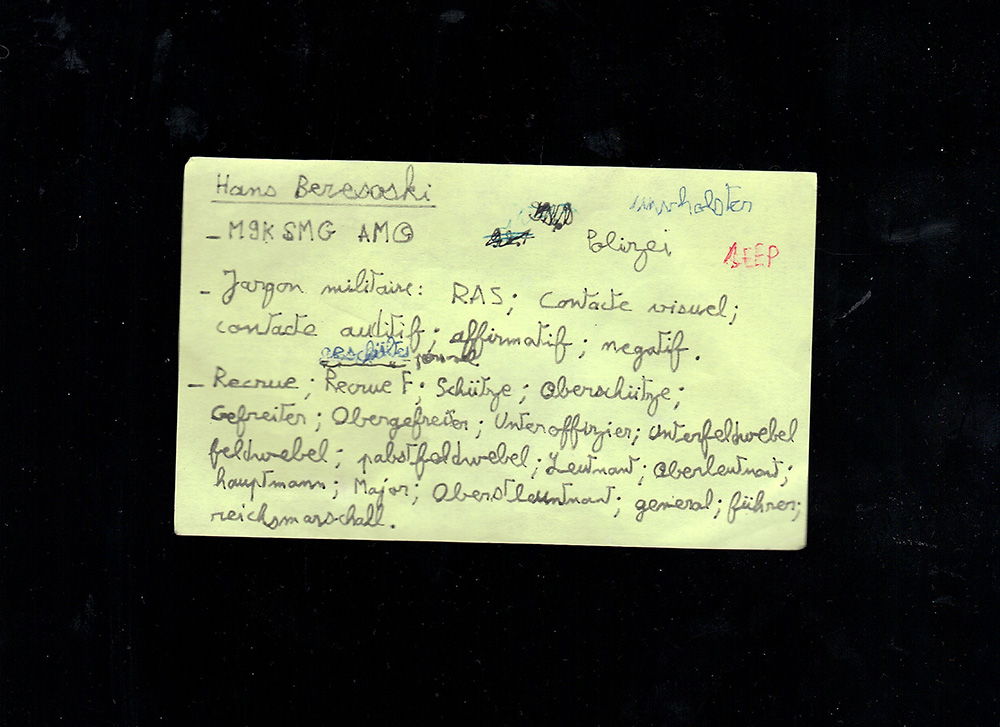 Hans Beresoski
unvholster
- M9K SMG AMO
Polizei
BEEP
- Jargon militaire: RAS; Contacte visuel;
contacte auditif; affirmatif; negatif.
- Recrue; Recrue F; Schütze; Oberschütze;
Gefreiter; Obergefreiter; Unteroffizier; unterfeldwebel
feldwebel; pabstfeldwebel; Leutnant; Oberleutnant;
hauptmann; Major; Oberstleuntnant; general; führer;
reichsmarschall.